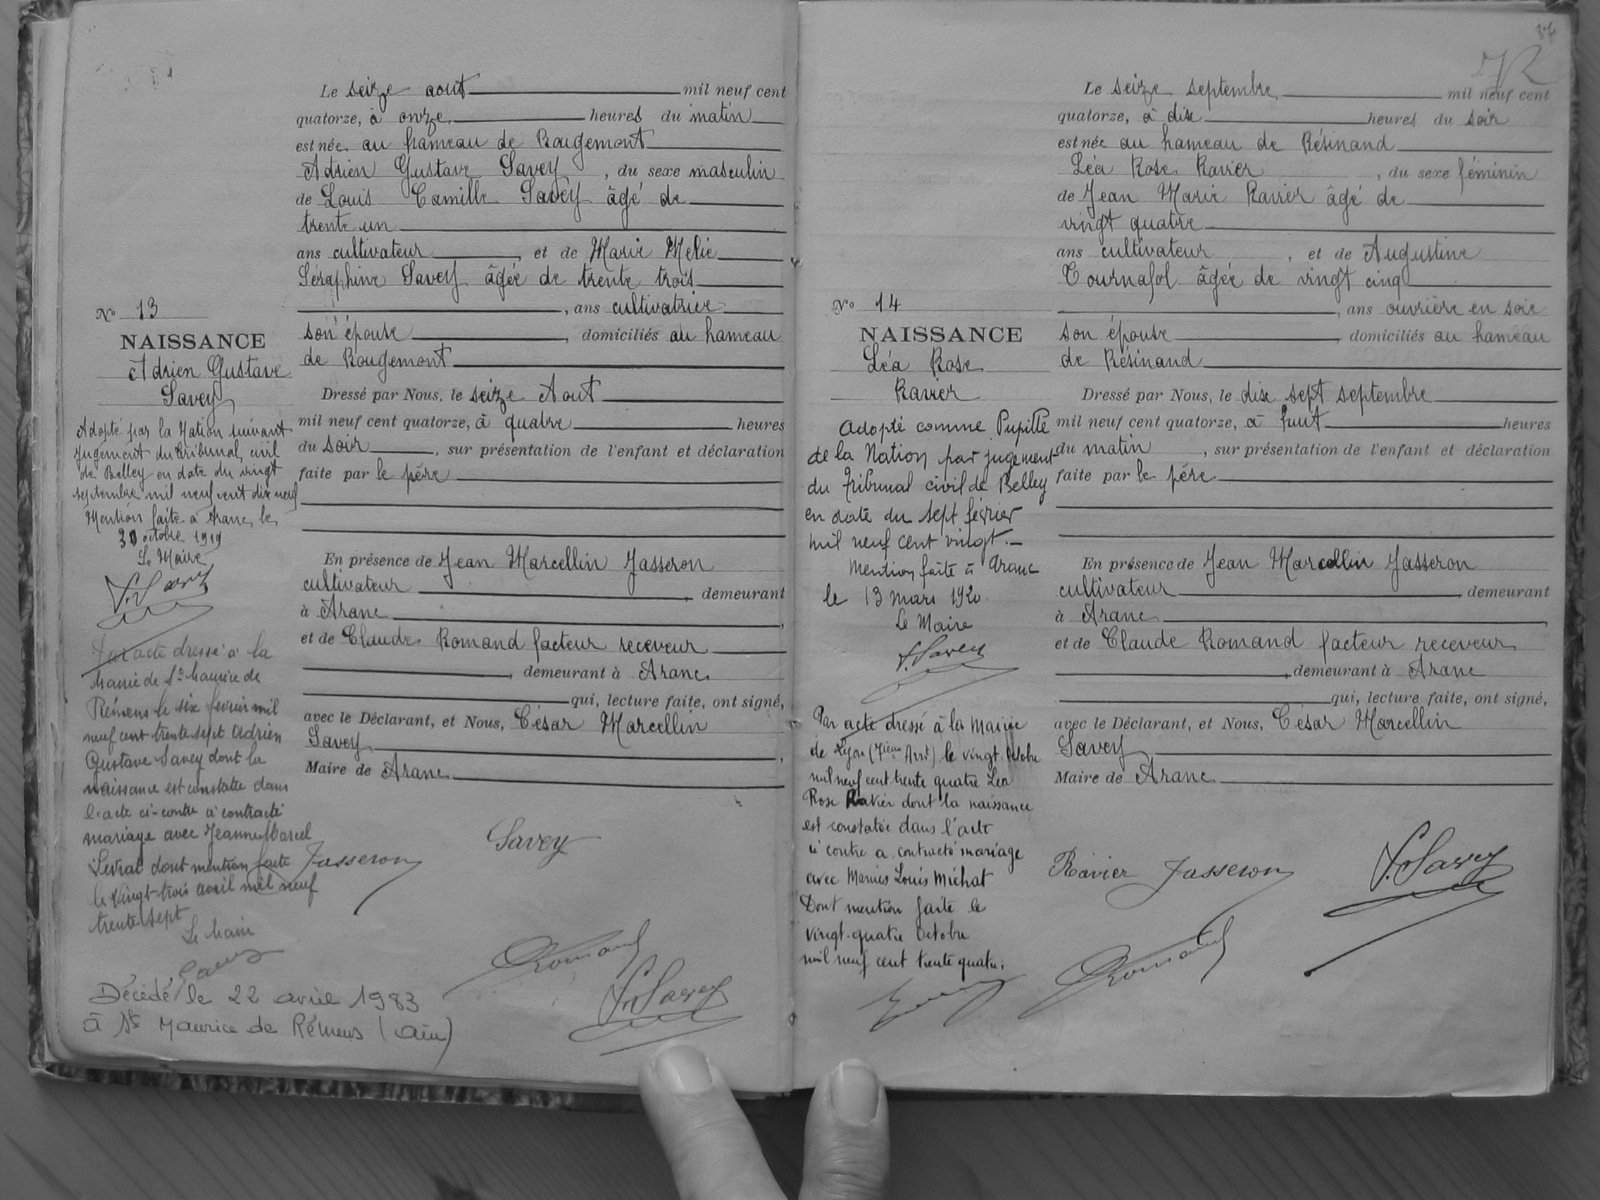 Le seize aout mil neuf cent
quatorze, à onze heures du matin
est née au hameau de Rougemont
Adrien Gustave Savey, du sexe masculin
de Louis Camille Savey âgé de
trente un
ans cultivateur, et de Marie Mélie
Séraphine Savey âgée de trente trois
, ans cultivatrice
son épouse, domiciliés au hameau
de Rougemont
Dressé par Nous, le seize Aout
mil neuf cent quatorze, à quatre heures
du soir, sur présentation de l'enfant et déclaration
faite par le père
En présence de Jean Marcellin Jasseron
cultivateur, demeurant
à Aranc,
et de Claude Romand facteur receveur
, demeurant à Aranc
qui, lecture faite, ont signé,
avec le Déclarant, et Nous, César Marcellin
Savey,
Maire de Aranc
Savey
Jasseron
Romand
Savey
No 13
NAISSANCE
Adrien Gustave
Savey
Adopté par la Nation suivant
jugement du tribunal civil
de Belley en date du vingt
septembre mil neuf cent dix neuf
Mention faite à Aranc, le
30 octobre 1919
Le Maire
Savey
Par acte dressé à la
Mairie de St Maurice de
Rémens le six février mil
neuf cent trente sept Adrien
Gustave Savey dont la
naissance est constatée dans
l'acte ci-contre a contracté
mariage avec Jeanne Marcel
dont mention faite
le vingt-trois avril mil neuf
trente sept
Le Maire
Savey
Décédé le 22 avril 1983
à St Maurice de Rémens (Ain)
Le seize septembre mil neuf cent
quatorze, à dix heures du soir
est née au hameau de Résinand
Léa Rose Ravier, du sexe féminin
de Jean Marie Ravier âgé de
vingt quatre
ans cultivateur, et de Augustine
Tournafol âgée de vingt cinq
, ans ouvrière en soie
son épouse, domiciliés au hameau
de Résinand
Dressé par Nous, le dix sept septembre
mil neuf cent quatorze, à huit heures
du matin, sur présentation de l'enfant et déclaration
faite par le père
En présence de Jean Marcellin Jasseron
cultivateur, demeurant
à Aranc,
et de Claude Romand facteur receveur
, demeurant à Aranc
qui, lecture faite, ont signé,
avec le Déclarant, et Nous, César Marcellin
Savey,
Maire de Aranc
Ravier Jasseron Savey
Romand
No 14
NAISSANCE
Léa Rose
Ravier
Adopté comme Pupille
de la Nation par jugement
du Tribunal civil de Belley
en date du sept février
mil neuf cent vingt.-
Mention faite à Aranc
le 13 mars 1920
Le Maire
Savey
Par acte dressé à la Mairie
de Lyon (7ième Arrt) le vingt Octobre
mil neuf cent trente quatre Léa
Rose Ravier dont la naissance
est constatée dans l'acte
ci contre a contracté mariage
avec Marius Louis Michat
Dont mention faite le
vingt-quatre Octobre
mil neuf cent trente quatre.